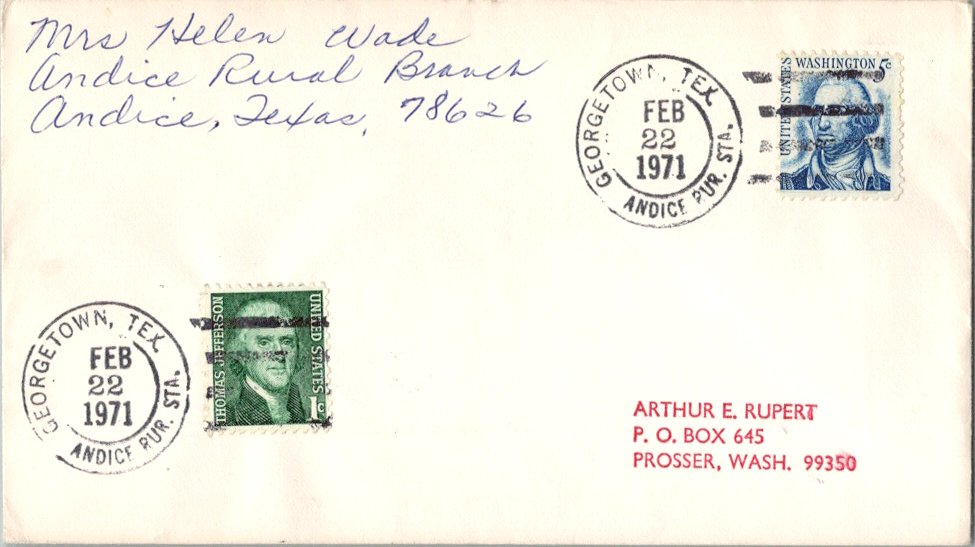 Mrs Helen Wade
Andice Rural Branch
Andice, Texas, 78626
GEORGETOWN, TEX.
FEB
22
1971
ANDICE RUR. STA.
UNITED STATES
WASHINGTON 5c
GEORGETOWN, TEX.
FEB
22
1971
ANDICE RUR. STA.
THOMAS JEFFERSON
UNITED STATES
1c
ARTHUR E. RUPERT
P. O. BOX 645
PROSSER, WASH. 99350